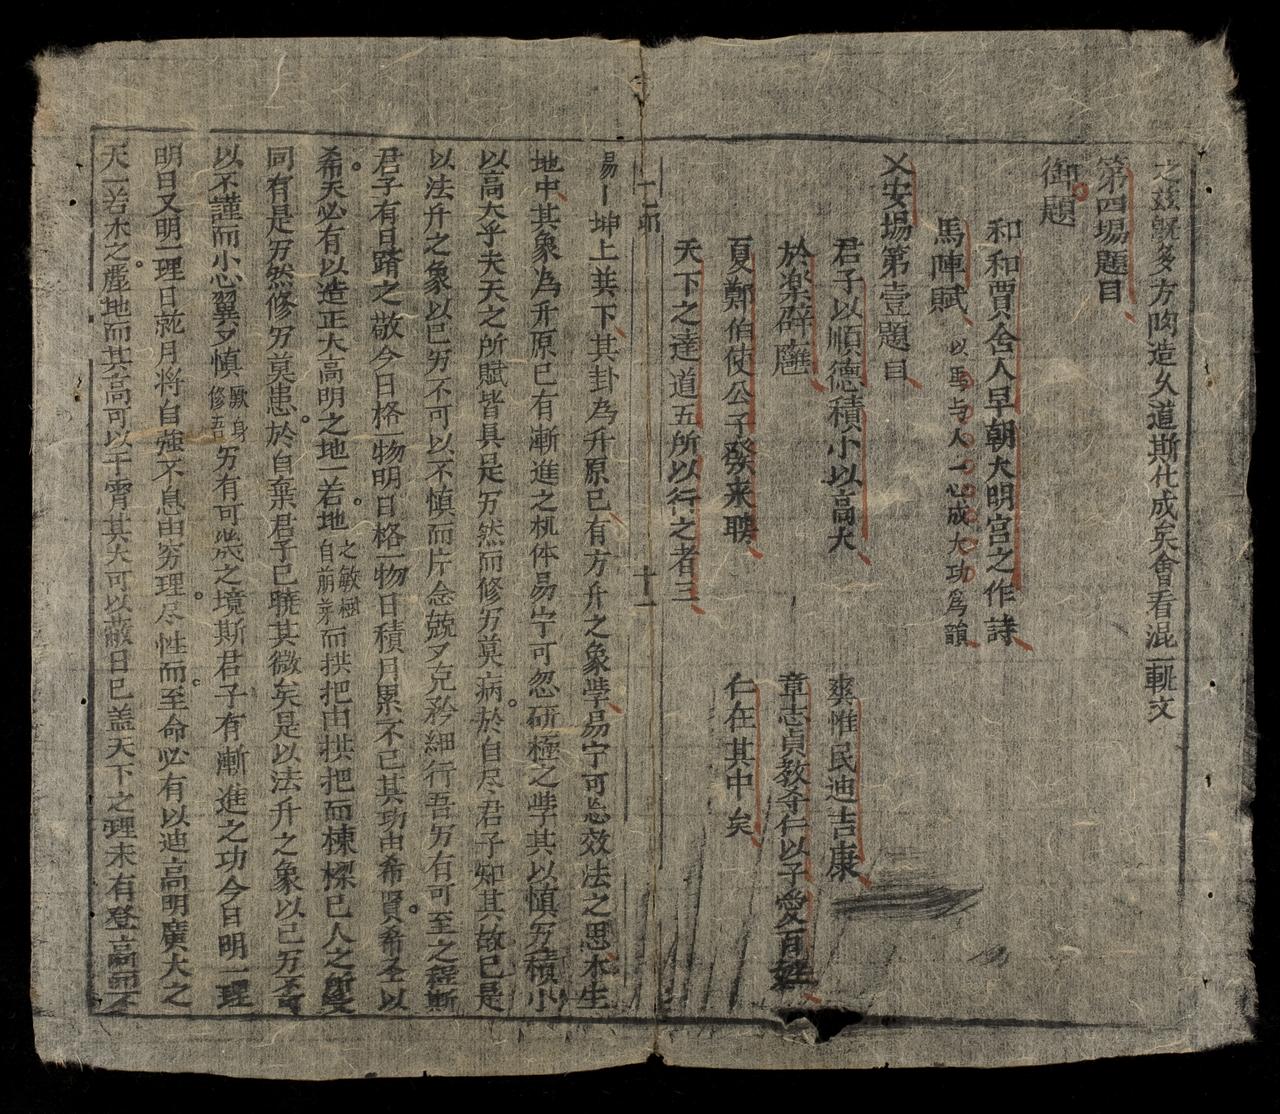 之茲既多方陶造久道斯化成矣會看混一軼文
第四場題目
御題
和和賈舍人早朝大明宮之作詩
馬陣賦 以馬与人一心成大功爲韻
乂安場第壹題目
君子以順德積小以高大 爽惟民迪吉康
於楽辟廱 章志貞教尊仁以子愛百姓
夏鄭伯使公子發来聘 仁在其中矣
天下之達道五所以行之者三
十一
易 坤上巽下其卦為升原已有方升之象學易宁可忘效法之思木生
地中其象為升原已有漸進之机体易宁可忽研極之學其以慎㐌積小
以高大乎夫天之所賦皆具是㐌然而修㐌莫病於自尽君子知其故已是
以法升之象以已㐌不可以不慎而片念兢〻克矜細行吾㐌有可至之程斯
君子有日躋之敬今日格一物明日格一物日積月累不已其功由希賢希圣以
希天必有以造正大高明之地一若地之敏樹自萠芽而拱把由拱把而棟樑已人之所受
同有是㐌然修㐌莫患於自棄君子已曉其微矣是以法升之象以已㐌不可
以不謹而小心翼〻慎厥身修吾㐌有可愆之境斯君子有漸進之功今日明一理
明日又明一理日就月将自強不息由穷理尽性而至命必有以迪高明廣大之
天一若木之麗地而其高可以干霄其大可以蔽日已盖天下之理未有登高而不